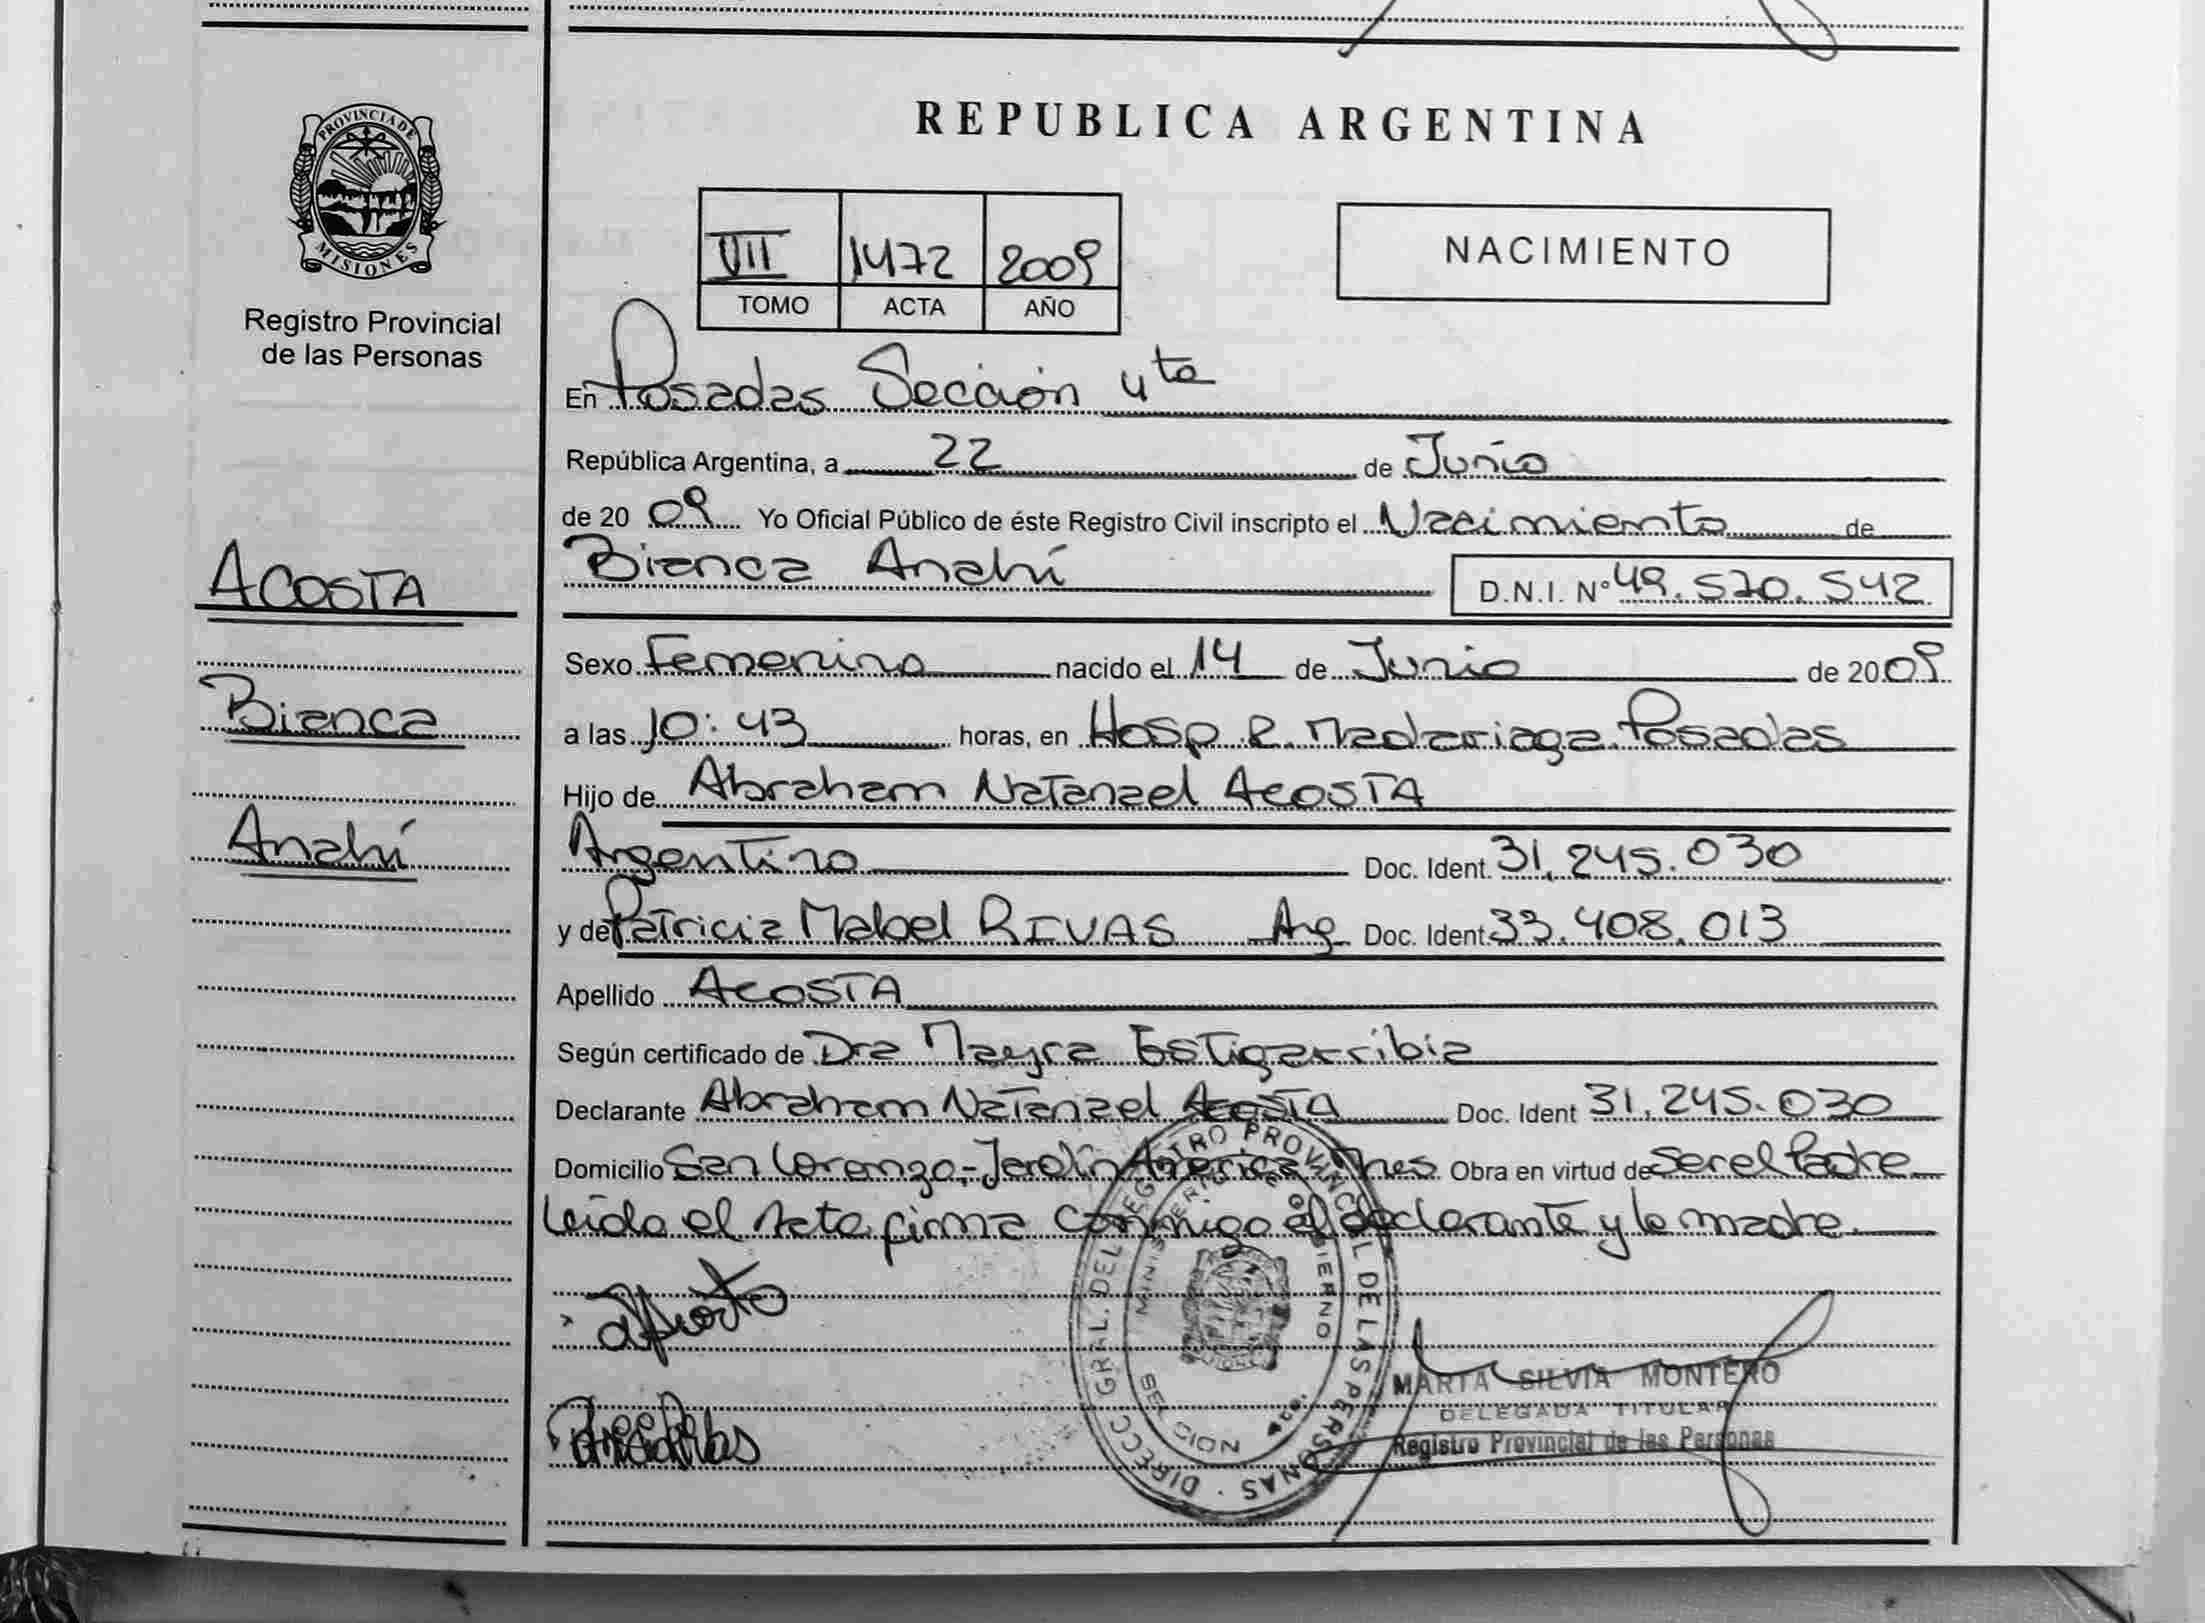 PROVINCIA DE
MISIONES
Registro Provincial
de las Personas
ACOSTA
Bianca
Anahí
REPUBLICA ARGENTINA
VII 1472 2009
TOMO ACTA AÑO
NACIMIENTO
En Posadas Sección 4ta
República Argentina, a 22 de Junio
de 20 09 Yo Oficial Público de éste Registro Civil inscripto el Nacimiento de
Bianca Anahí D.N.I. Nº 49.570.542
Sexo Femenino nacido el 14 de Junio de 2009
a las 10:43 horas, en Hosp. R. Madariaga. Posadas
Hijo de Abraham Natanael ACOSTA
Argentino Doc. Ident. 31.245.030
y de Patricia Mabel RIVAS Arg Doc. Ident 33.408.013
Apellido ACOSTA
Según certificado de Dra Mayra Estigarribia
Declarante Abraham Natanael ACOSTA Doc. Ident 31.245.030
Domicilio San Lorenzo,-Jardín América Mnes. Obra en virtud de ser el Padre
Leída el Acta firma conmigo el declarante y la madre.
DIRECC GRAL. DEL REGISTRO PROVINCIAL DE LAS PERSONAS
MINISTERIO DE GOBIERNO
MARTA SILVIA MONTERO
DELEGADA TITULAR
Registro Provincial de las Personas